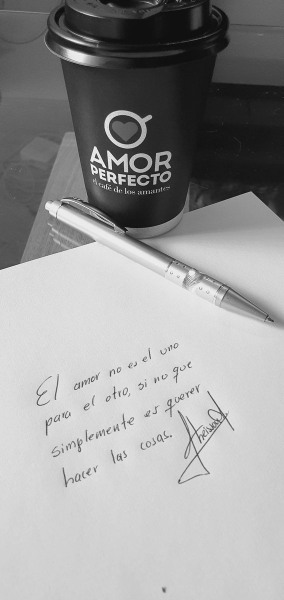 AMOR
PERFECTO
el café de los amantes
El amor no es el uno
para el otro, si no que
simplemente es querer
hacer las cosas.